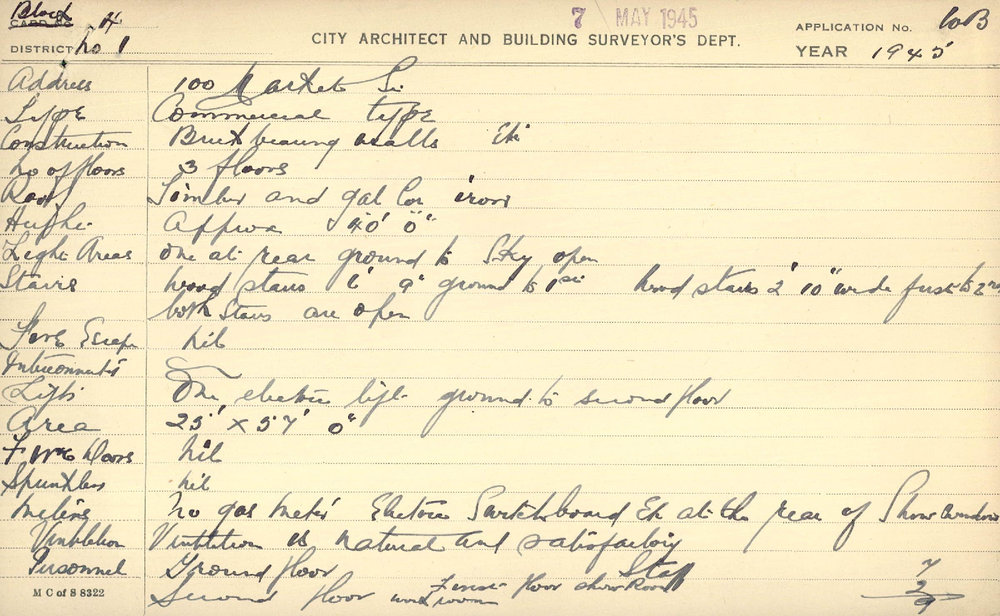 Block 4
CARD No.
DISTRICT No 1
7 MAY 1945
CITY ARCHITECT AND BUILDING SURVEYOR'S DEPT.
APPLICATION No. 60B
YEAR 1945
Address 100 Market St
Type Commercial type
Construction Brick bearing walls Etc
No of floors 3 floors
Roof Timber and gal Cor iron
Height Approx 40' 0"
Light Areas One at rear ground to Sky open
Stairs Wood stairs 6' 9" ground to 1st Wood stairs 2' 10" wide first to 2nd
both Stairs are open
Fire Escape nil
Lifts One electric lift ground to second floor
Area 25' x 57' 0"
Fire Doors nil
Sprinklers nil
Meters No gas meter Electric Switchboard Etc at the rear of Show windows
Ventilation Ventilation is natural and satisfactory
Personnel Ground floor Staff 7
First floor show Room
Second floor workroom 2
9
M C of S 8322